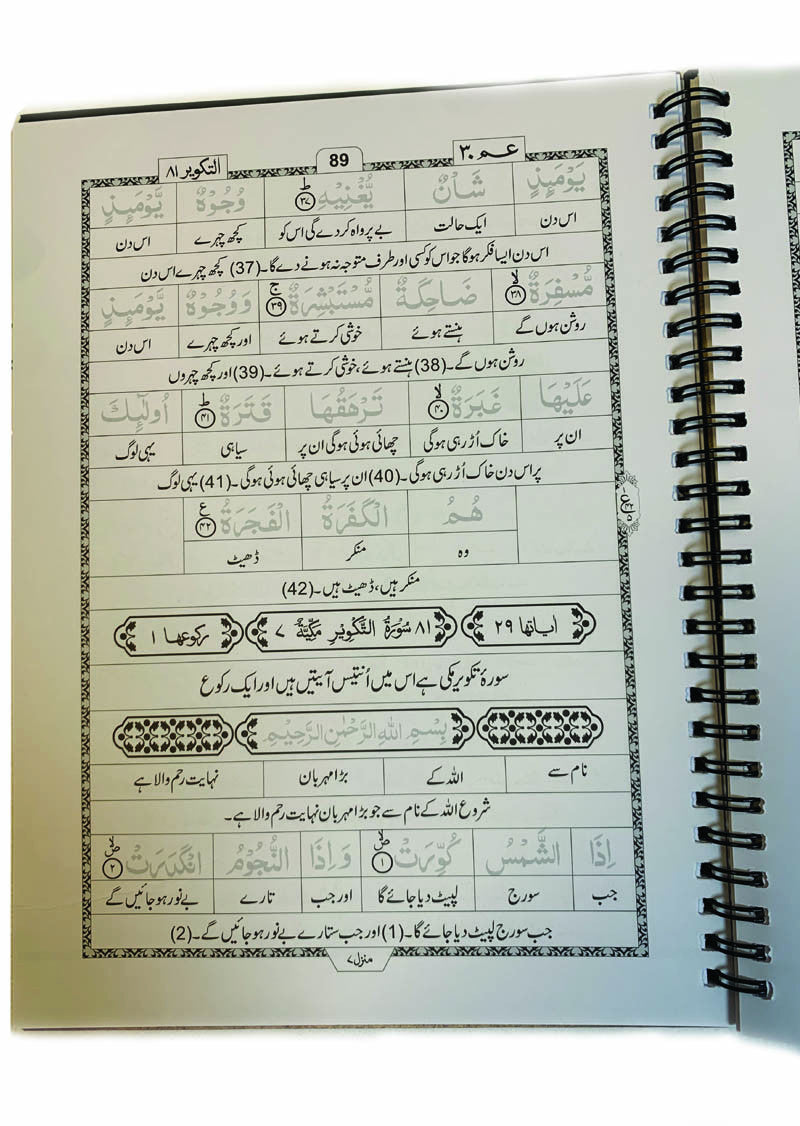 عم ٣٠
89
التكوير ٨١
يَوْمَئِذٍ شَاْنٌ يُّغْنِيْهِ ؕ ٣٧ وُجُوْهٌ يَّوْمَئِذٍ
اس دن ایک حالت بے پرواہ کر دے گی اس کو کچھ چہرے اس دن
اس دن ایسا فکر ہوگا جو اس کو کسی اور طرف متوجہ نہ ہونے دے گا۔ (37) کچھ چہرے اس دن
مُّسْفِرَةٌ ۙ ٣٨ ضَاحِكَةٌ مُّسْتَبْشِرَةٌ ۚ ٣٩ وَوُجُوْهٌ يَّوْمَئِذٍ
روشن ہوں گے ہنستے ہوئے خوشی کرتے ہوئے اور کچھ چہرے اس دن
روشن ہوں گے۔ (38) ہنستے ہوئے، خوشی کرتے ہوئے۔ (39) اور کچھ چہروں
عَلَيْهَا غَبَرَةٌ ۙ ٤٠ تَرْهَقُهَا قَتَرَةٌ ؕ ٤١ اُولٰٓئِكَ
ان پر خاک اُڑ رہی ہوگی چھائی ہوئی ہوگی ان پر سیاہی یہی لوگ
پر اس دن خاک اُڑ رہی ہوگی۔ (40) ان پر سیاہی چھائی ہوئی ہوگی۔ (41) یہی لوگ
هُمُ الْكَفَرَةُ الْفَجَرَةُ ع ٤٢
وہ منکر ڈھیٹ
منکر ہیں، ڈھیٹ ہیں۔ (42)
اٰیاتها ٢٩ ٨١ سُوْرَةُ التَّكْوِيْرِ مَكِّيَّةٌ ٧ رکوعها ١
سورۂ تکویر مکی ہے اس میں اُنتیس آیتیں ہیں اور ایک رکوع
بِسْمِ اللّٰهِ الرَّحْمٰنِ الرَّحِيْمِ
نام سے اللہ کے بڑا مہربان نہایت رحم والا ہے
شروع اللہ کے نام سے جو بڑا مہربان نہایت رحم والا ہے۔
اِذَا الشَّمْسُ كُوِّرَتْ ١ وَاِذَا النُّجُوْمُ انْكَدَرَتْ ٢
جب سورج لپیٹ دیا جائے گا اور جب تارے بے نور ہو جائیں گے
جب سورج لپیٹ دیا جائے گا۔ (1) اور جب ستارے بے نور ہو جائیں گے۔ (2)
منزل ٧